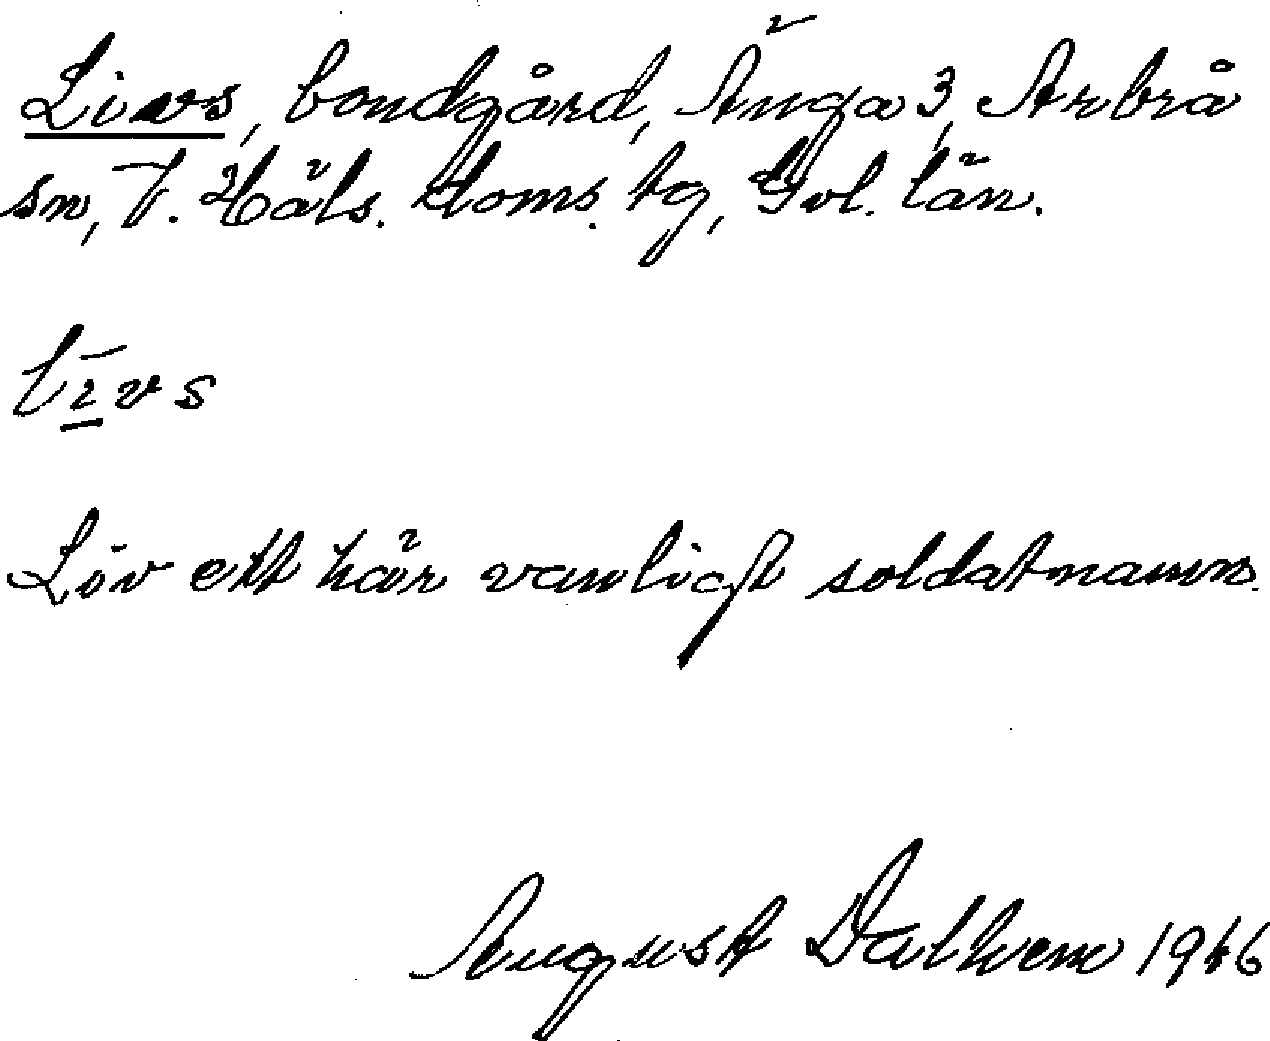 Livs, bondgård, Änga 3, Arbrå
sn, V. Häls. doms. tg, Gvl. län.
līvs
Liv ett här vanligt soldatnamn.
August Dalhem 1946